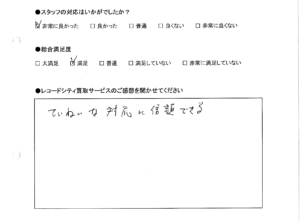 ●スタッフの対応はいかがでしたか？
☑非常に良かった □良かった □普通 □良くない □非常に良くない
●総合満足度
□大満足 ☑満足 □普通 □満足していない □非常に満足していない
●レコードシティ買取サービスのご感想を聞かせてください
ていねいな対応に信頼できる